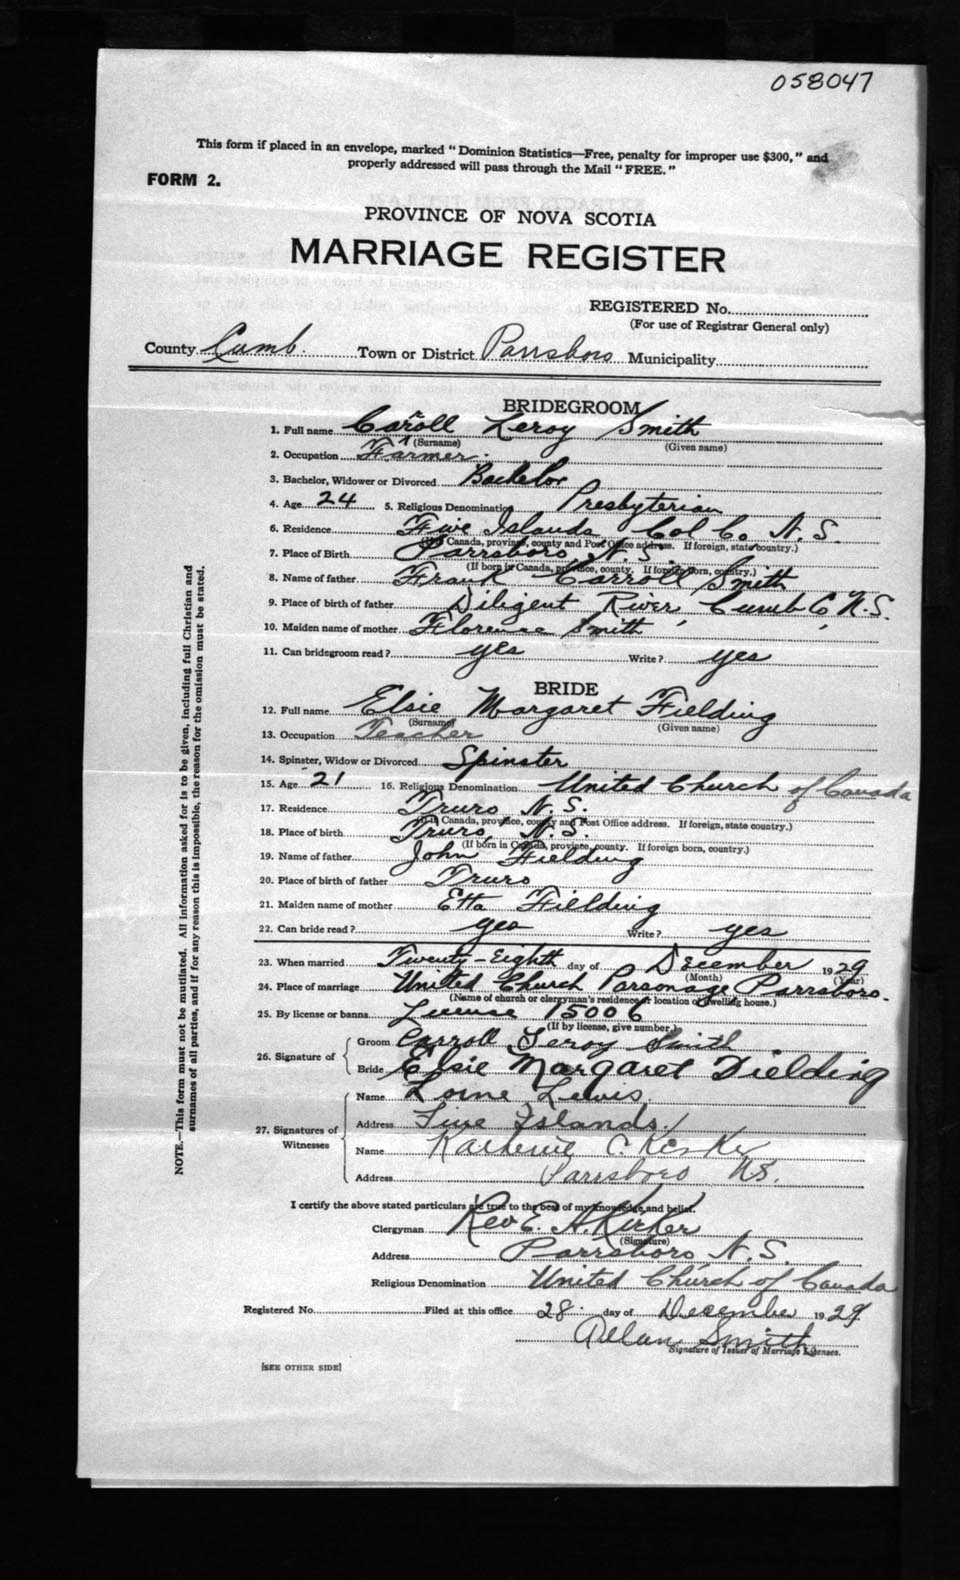 058047
This form if placed in an envelope, marked "Dominion Statistics—Free, penalty for improper use $300," and
properly addressed will pass through the Mail "FREE."
FORM 2.
PROVINCE OF NOVA SCOTIA
MARRIAGE REGISTER
REGISTERED No.
(For use of Registrar General only)
County Cumb. Town or District Parrsboro Municipality
BRIDEGROOM
1. Full name Carroll Leroy Smith
(Surname) (Given name)
2. Occupation Farmer.
3. Bachelor, Widower or Divorced Bachelor
4. Age 24 5. Religious Denomination Presbyterian
6. Residence Five Islands Col Co. N. S.
(If in Canada, province, county and Post Office address. If foreign, state country.)
7. Place of Birth Parrsboro N. S.
(If born in Canada, province, county. If foreign born, country.)
8. Name of father Frank Carroll Smith
9. Place of birth of father Diligent River, Cumb Co, N.S.
10. Maiden name of mother Florence Smith
11. Can bridegroom read? yes Write? yes
BRIDE
12. Full name Elsie Margaret Fielding
(Surname) (Given name)
13. Occupation Teacher
14. Spinster, Widow or Divorced Spinster
15. Age 21 16. Religious Denomination United Church of Canada
17. Residence Truro N. S.
(If in Canada, province, county and Post Office address. If foreign, state country.)
18. Place of birth Truro, N. S.
(If born in Canada, province, county. If foreign born, country.)
19. Name of father John Fielding
20. Place of birth of father Truro
21. Maiden name of mother Etta Fielding
22. Can bride read? yes Write? yes
23. When married Twenty-Eighth day of December 1929
(Month) (Year)
24. Place of marriage United Church Parsonage Parrsboro.
(Name of church or clergyman's residence, or location of dwelling house.)
25. By license or banns License 15006
(If by license, give number.)
26. Signature of
Groom Carroll Leroy Smith
Bride Elsie Margaret Fielding
27. Signatures of Witnesses
Name Lorne Lewis
Address Five Islands.
Name Katherine C. Kirker
Address Parrsboro N.S.
I certify the above stated particulars are true to the best of my knowledge and belief.
Clergyman Rev E. A. Kirker
(Signature)
Address Parrsboro N. S.
Religious Denomination United Church of Canada
Registered No. Filed at this office 28. day of December 1929
Allan Smith
Signature of Issuer of Marriage Licenses.
[SEE OTHER SIDE]
NOTE.—This form must not be mutilated. All information asked for is to be given, including full Christian and
surnames of all parties, and if for any reason this is impossible, the reason for the omission must be stated.